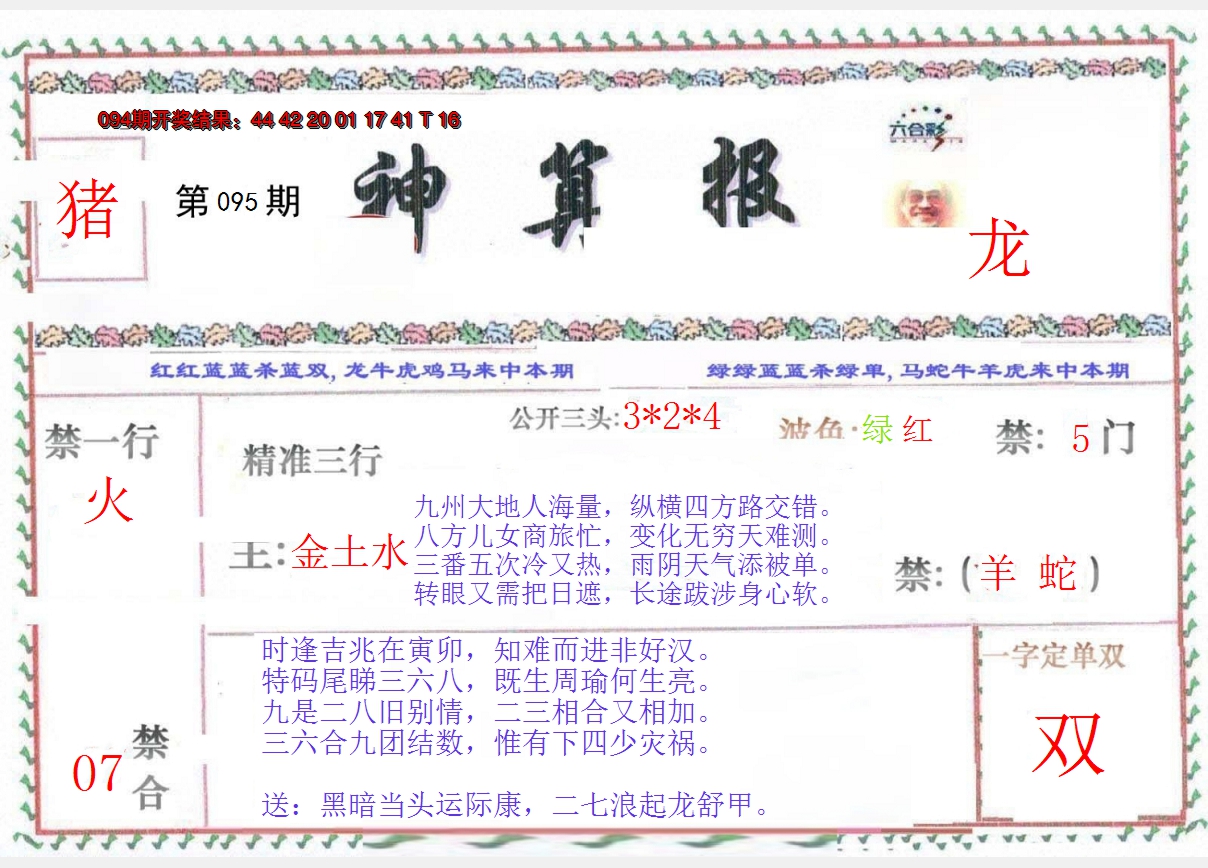 094期开奖结果：44 42 20 01 17 41 T 16
六合彩
猪
第 095 期
神算报
龙
红红蓝蓝杀蓝双,龙牛虎鸡马来中本期
绿绿蓝蓝杀绿单,马蛇牛羊虎来中本期
公开三头:3*2*4
波色:绿 红
禁: 5 门
禁一行
火
精准三行
主:金土水
九州大地人海量，纵横四方路交错。
八方儿女商旅忙，变化无穷天难测。
三番五次冷又热，雨阴天气添被单。
转眼又需把日遮，长途跋涉身心软。
禁:(羊 蛇)
时逢吉兆在寅卯，知难而进非好汉。
特码尾睇三六八，既生周瑜何生亮。
九是二八旧别情，二三相合又相加。
三六合九团结数，惟有下四少灾祸。
送：黑暗当头运际康，二七浪起龙舒甲。
07
禁合
一字定单双
双